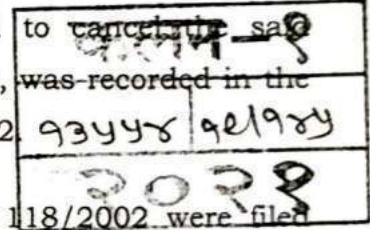 to cancel the said
, was recorded in the
2 १३५५४
२०२१
118/2002 were filed